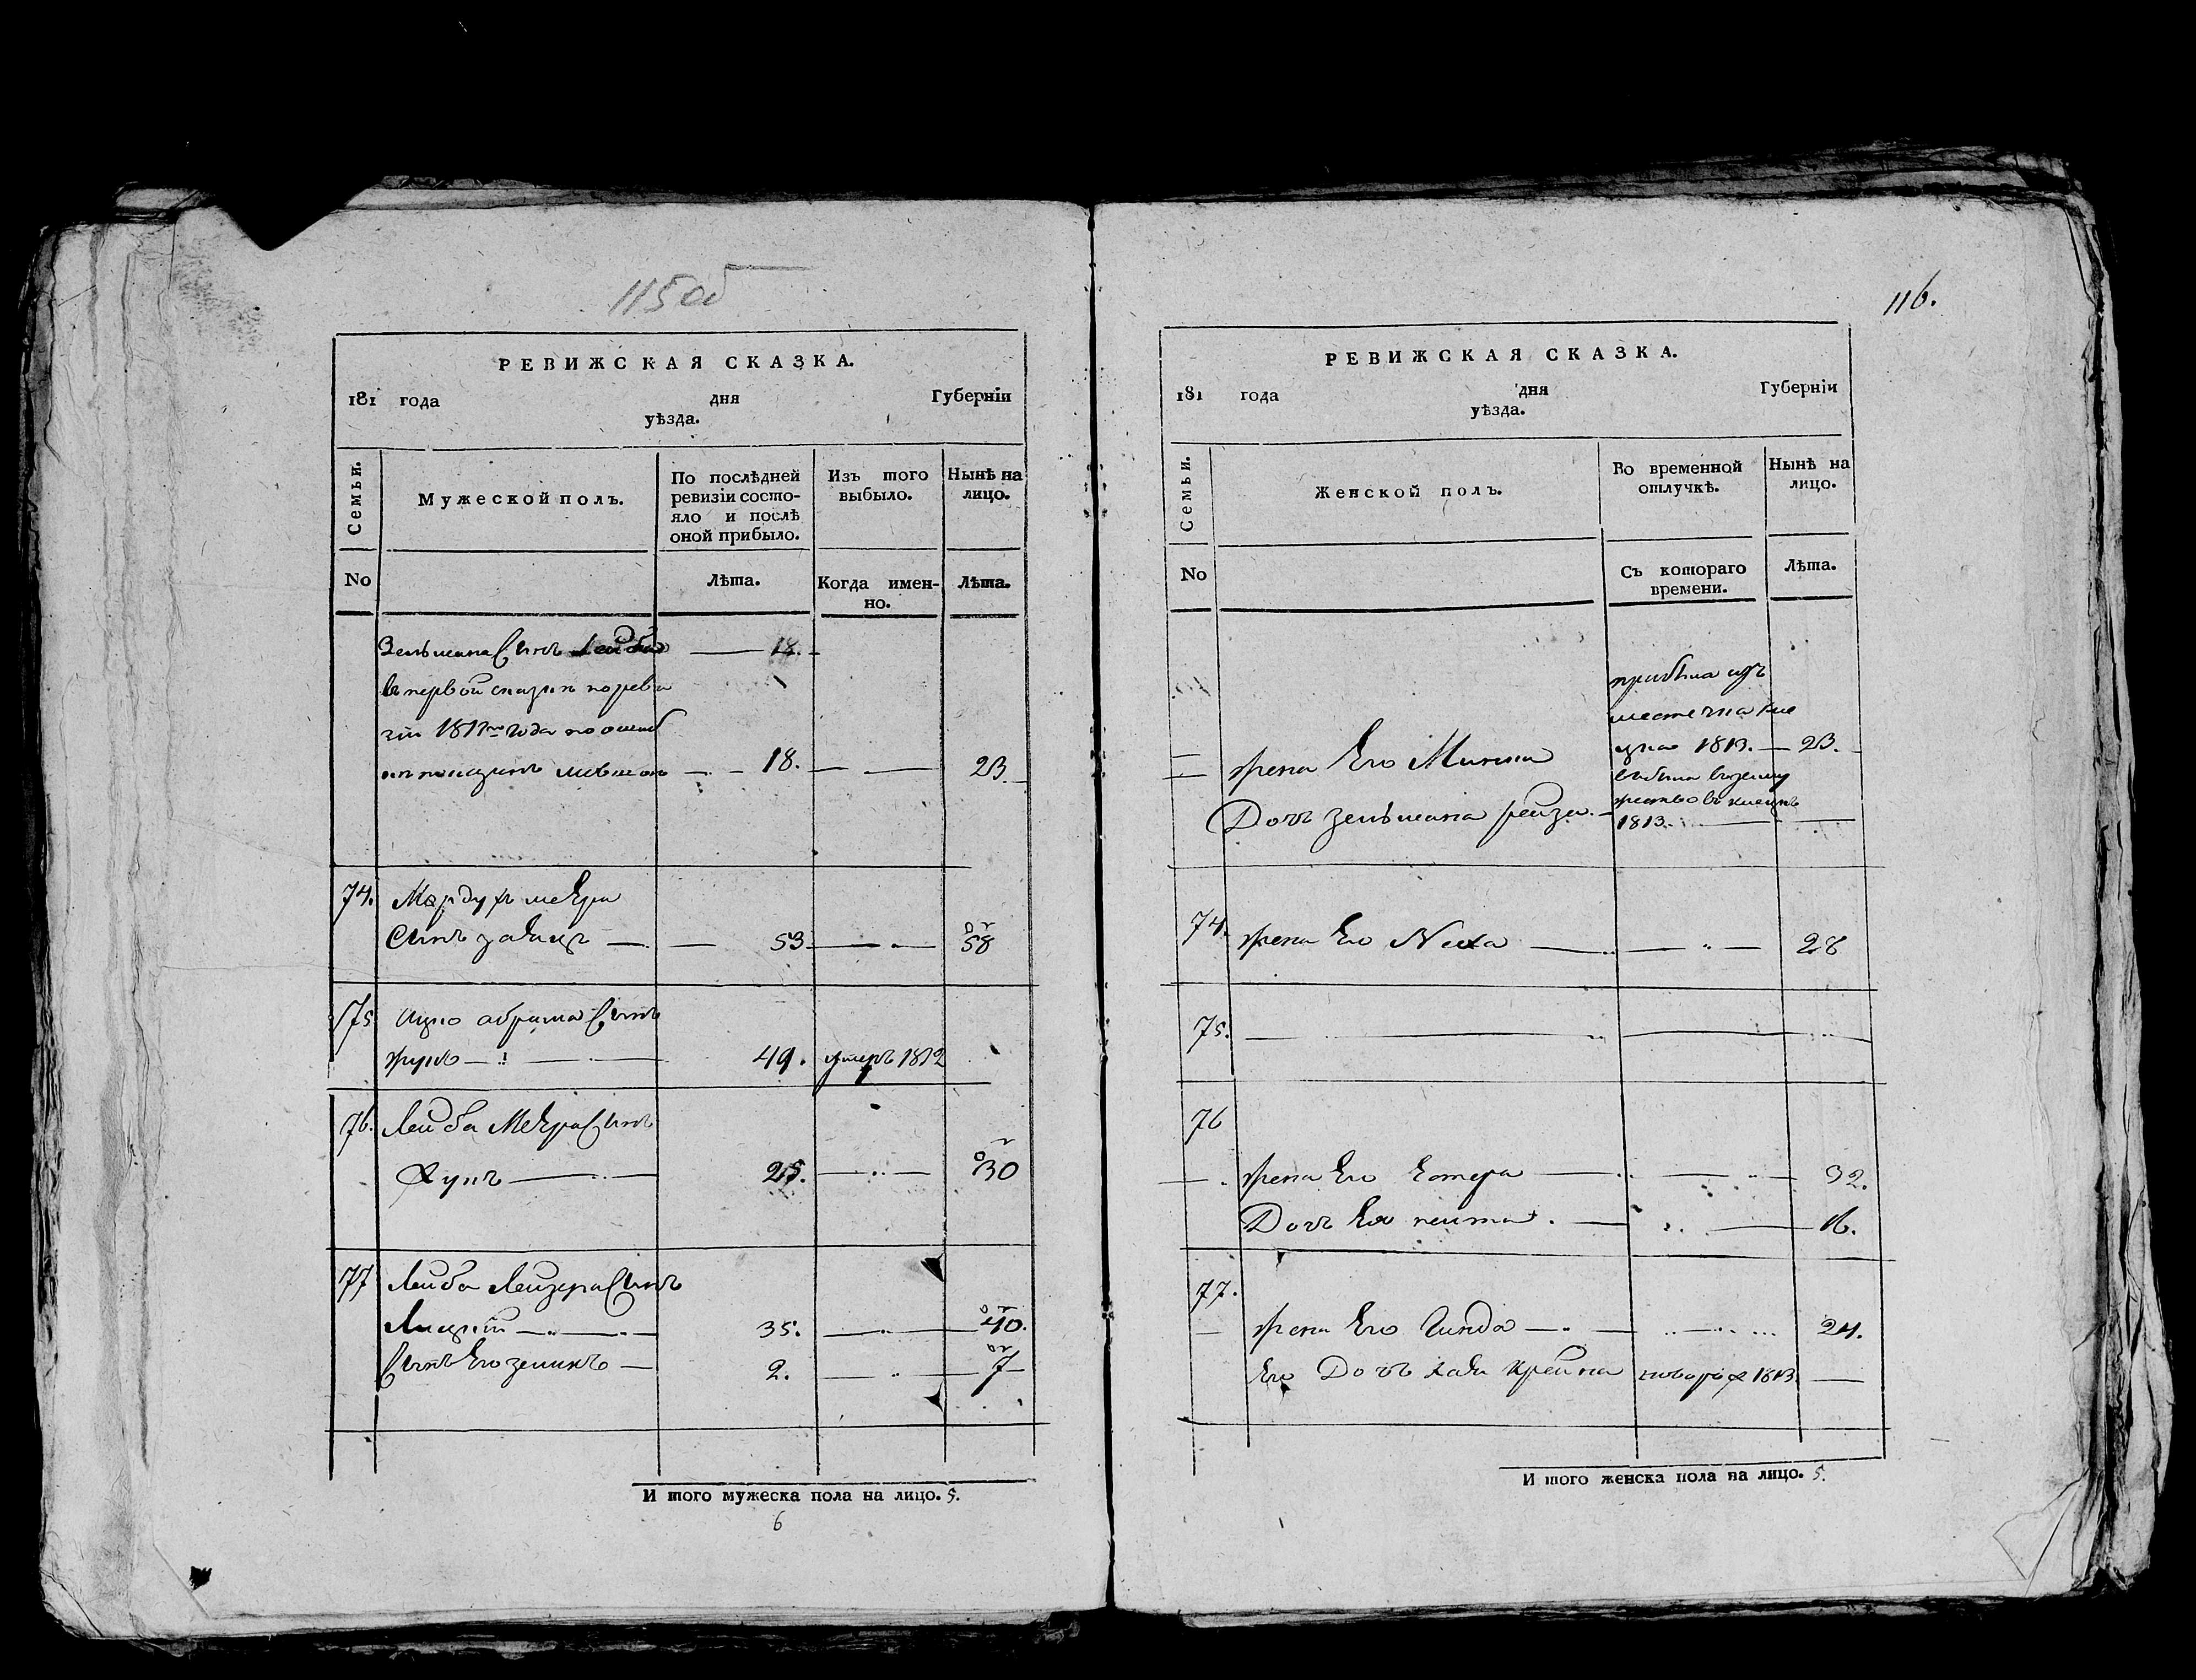 115об
РЕВИЖСКАЯ СКАЗКА.
181 года дня Губерніи
уѣзда.
Семьи.
Мужеской полъ.
По послѣдней
ревизіи состо-
яло и послѣ
оной прибыло.
Изъ того
выбыло.
Нынѣ на
лицо.
No
Лѣта.
Когда имен-
но.
Лѣта.
Зельмана Сынъ Лейба 18.
в первой сказки по реви
зіи 1811го года по ошиб
18. 23.
74. Мордухъ меера
Сынъ 53 58
75 Ицко абрама Сынъ
жукъ 49. умеръ 1812
76. Лейба Меера Сынъ
25. 30
77 Лейба Лейзера Сынъ
35. 40.
Сынъ Его зеликъ 2. 7
И того мужеска пола на лицо. 5.
6
116.
РЕВИЖСКАЯ СКАЗКА.
181 года дня Губерніи
уѣзда.
Семьи.
Женской полъ.
Во временной
отлучкѣ.
Нынѣ на
лицо.
No
Съ котораго
времени.
Лѣта.
прибыла изъ
местечка Кле
жена Его Минна цка 1813. 23.
Дочь зельмана рейза
1813.
74. жена Его 28
75.
76
жена Его Естера 32.
Дочь Ея 16.
77.
жена Его Гинда 24.
Его Дочь хая крейна 1813.
И того женска пола на лицо. 5.